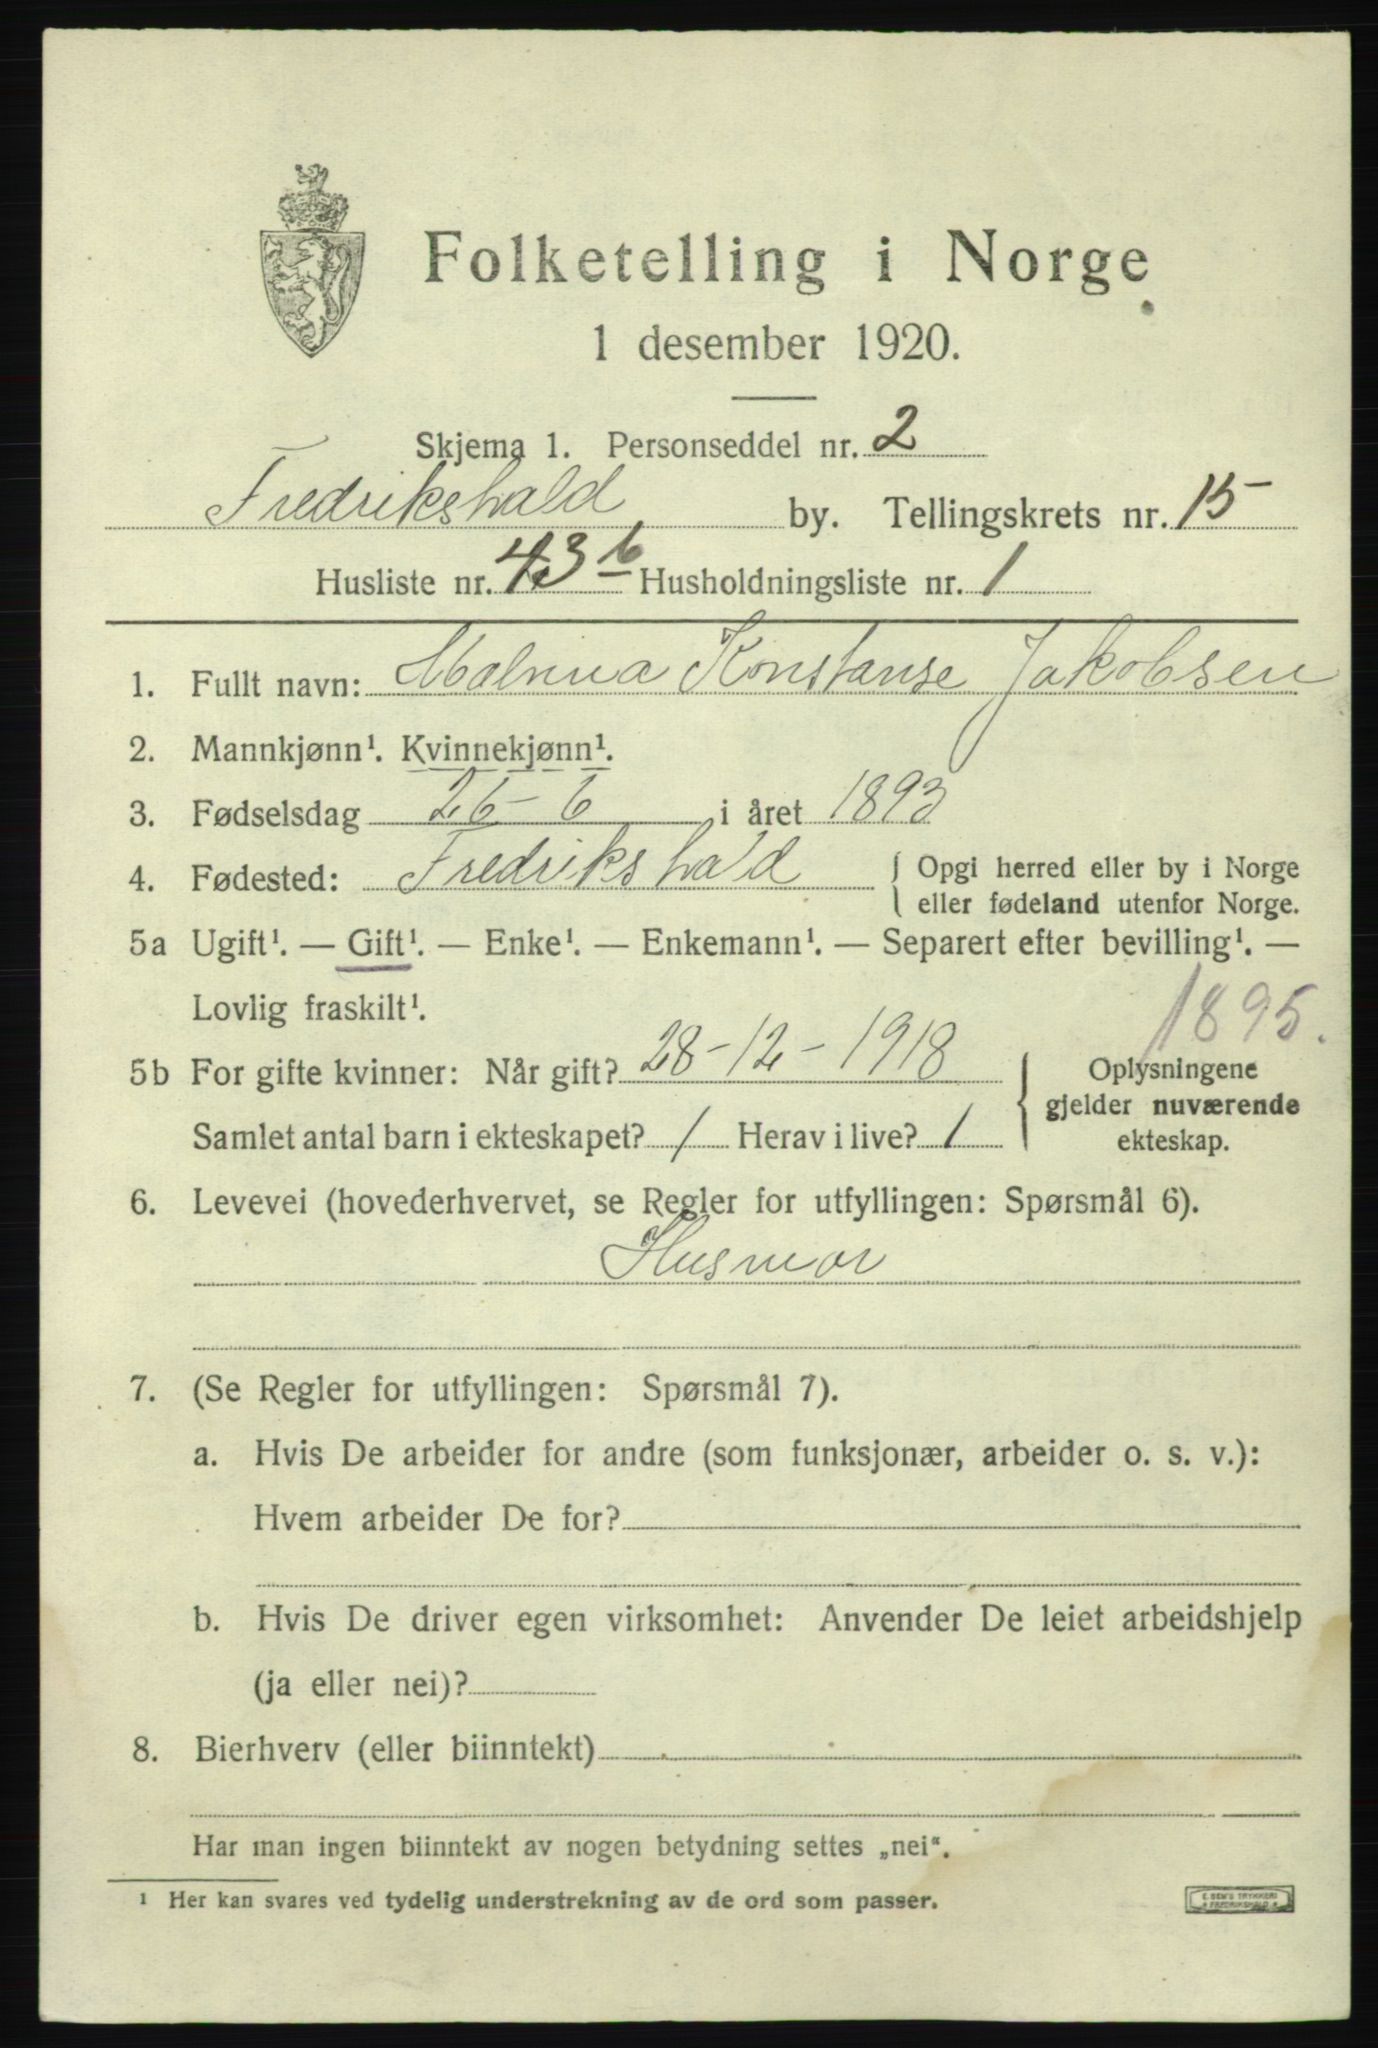 Folketelling i Norge
1 desember 1920.
Skjema 1. Personseddel nr. 2
Fredrikshald by. Tellingskrets nr. 15
Husliste nr. 43 b Husholdningsliste nr. 1
1. Fullt navn: Malvina Konstanse Jakobsen
2. Mannkjønn¹. Kvinnekjønn¹.
3. Fødselsdag 26-6 i året 1893
4. Fødested: Fredrikshald { Opgi herred eller by i Norge
eller fødeland utenfor Norge.
5a Ugift¹. — Gift¹. — Enke¹. — Enkemann¹. — Separert efter bevilling¹. —
Lovlig fraskilt¹.
1895.
5b For gifte kvinner: Når gift? 28-12-1918 { Oplysningene
gjelder nuværende
Samlet antal barn i ekteskapet? 1 Herav i live? 1 ekteskap.
6. Levevei (hovederhvervet, se Regler for utfyllingen: Spørsmål 6).
Husmor
7. (Se Regler for utfyllingen: Spørsmål 7).
a. Hvis De arbeider for andre (som funksjonær, arbeider o. s. v.):
Hvem arbeider De for?
b. Hvis De driver egen virksomhet: Anvender De leiet arbeidshjelp
(ja eller nei)?
8. Bierhverv (eller biinntekt)
Har man ingen biinntekt av nogen betydning settes „nei“.
¹ Her kan svares ved tydelig understrekning av de ord som passer.
E. SEM'S TRYKKERI
FREDRIKSHALD